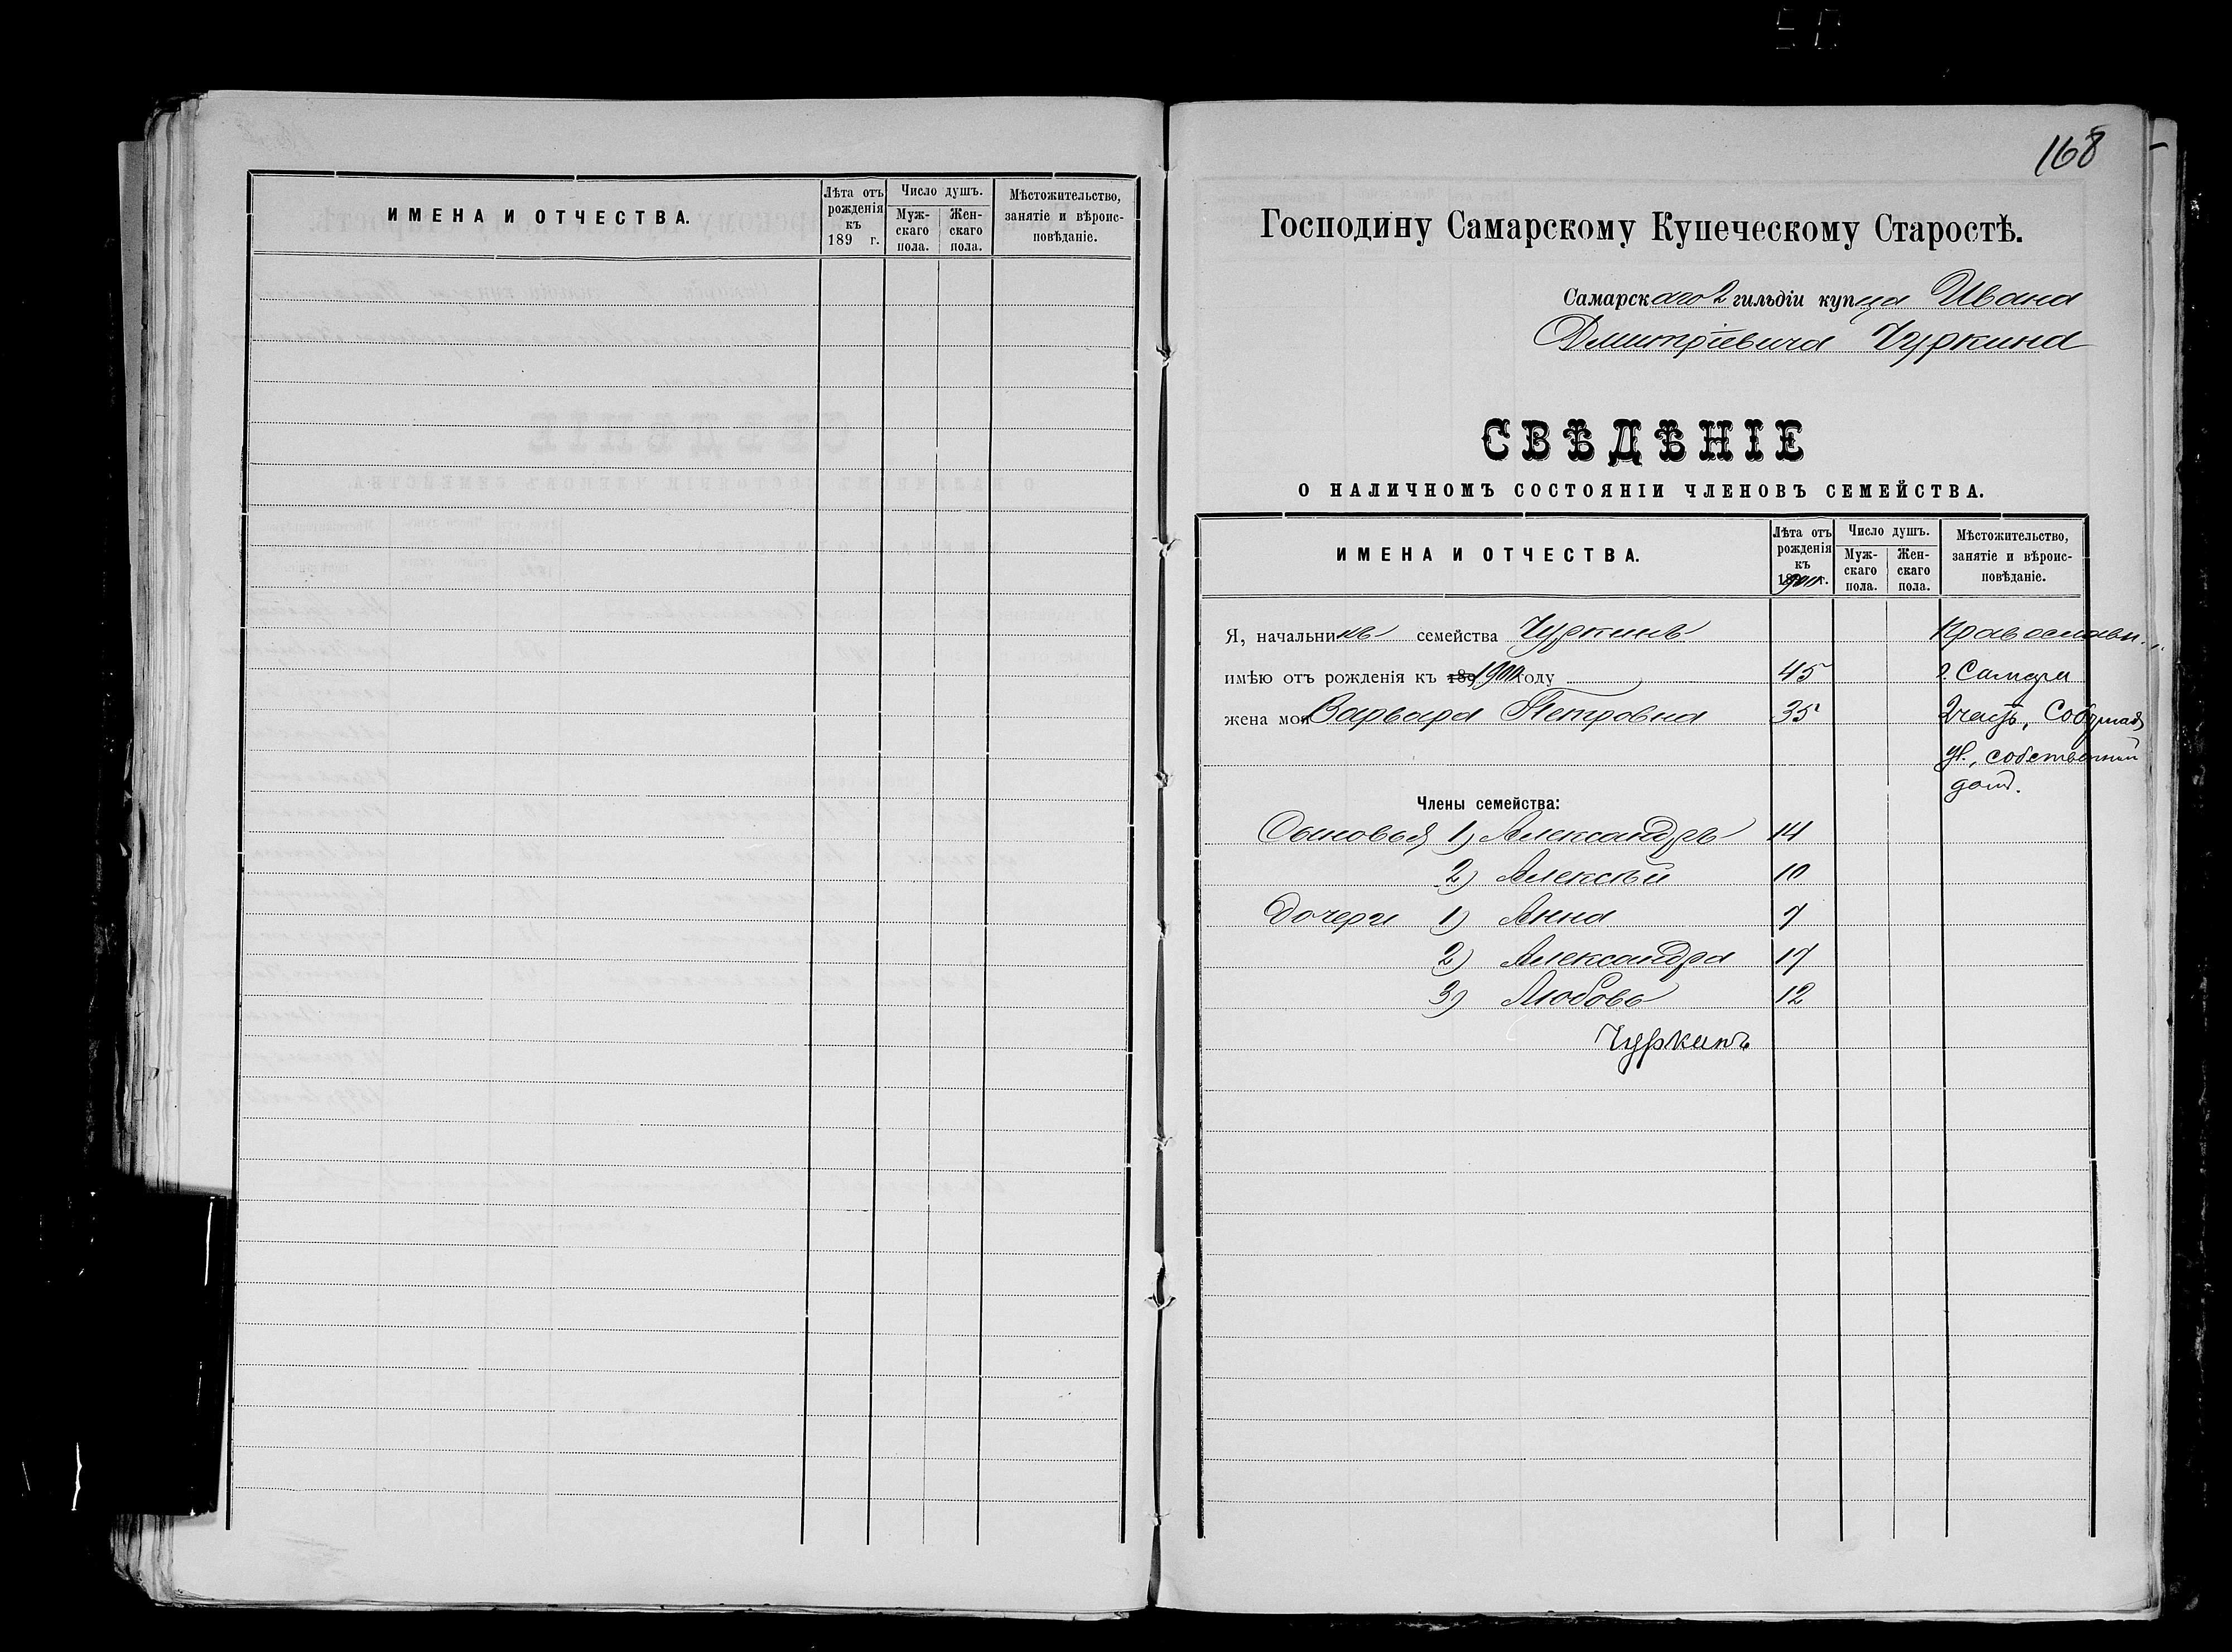 ИМЕНА И ОТЧЕСТВА.
Лѣта отъ рожденія къ 189 г.
Число душъ.
Мужскаго пола.
Женскаго пола.
Мѣстожительство, занятіе и вѣроисповѣданіе.
168
Господину Самарскому Купеческому Старостѣ.
Самарскаго 2 гильдіи купца Ивана
Дмитріевича Чуркина
СВѢДѢНІЕ
О НАЛИЧНОМЪ СОСТОЯНІИ ЧЛЕНОВЪ СЕМЕЙСТВА.
ИМЕНА И ОТЧЕСТВА.
Лѣта отъ рожденія къ г.
Число душъ.
Мужскаго пола.
Женскаго пола.
Мѣстожительство, занятіе и вѣроисповѣданіе.
Я, начальникъ семейства Чуркинъ Православн.
имѣю отъ рожденія къ году 45 г. Самара
жена моя Варвара Петровна 35 2 часть,
ул., собственный
домъ.
Члены семейства:
Сыновья 1) Александръ 14
2) Алексѣй 10
Дочери 1) Анна 7
2) Александра 17
3) Любовь 12
Чуркинъ